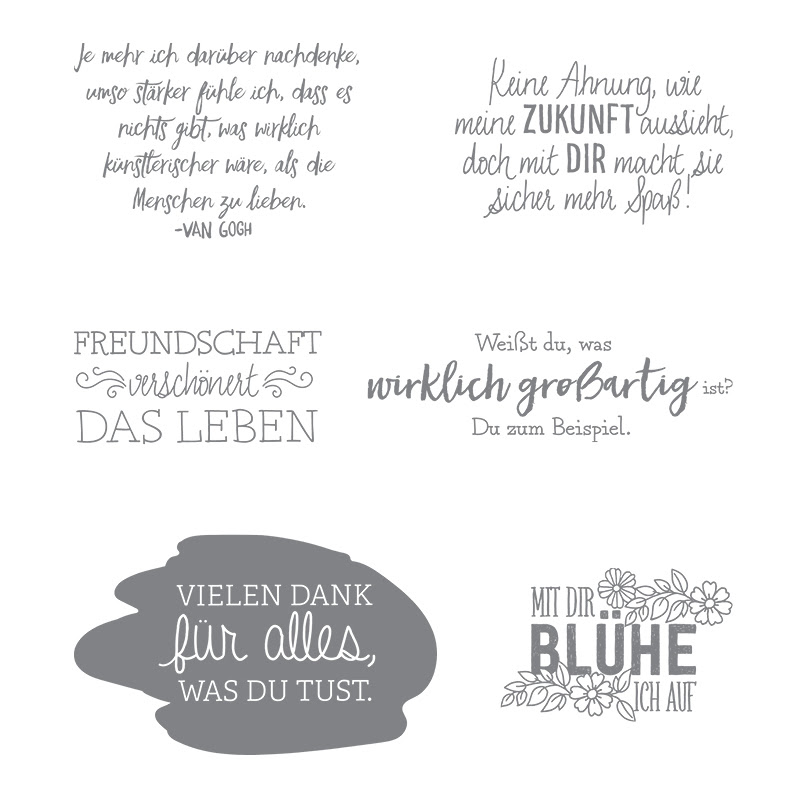 Je mehr ich darüber nachdenke,
umso stärker fühle ich, dass es
nichts gibt, was wirklich
künstlerischer wäre, als die
Menschen zu lieben.
-VAN GOGH
Keine Ahnung, wie
meine ZUKUNFT aussieht,
doch mit DIR macht sie
sicher mehr Spaß!
FREUNDSCHAFT
verschönert
DAS LEBEN
Weißt du, was
wirklich großartig ist?
Du zum Beispiel.
VIELEN DANK
für alles,
WAS DU TUST.
MIT DIR
BLÜHE
ICH AUF